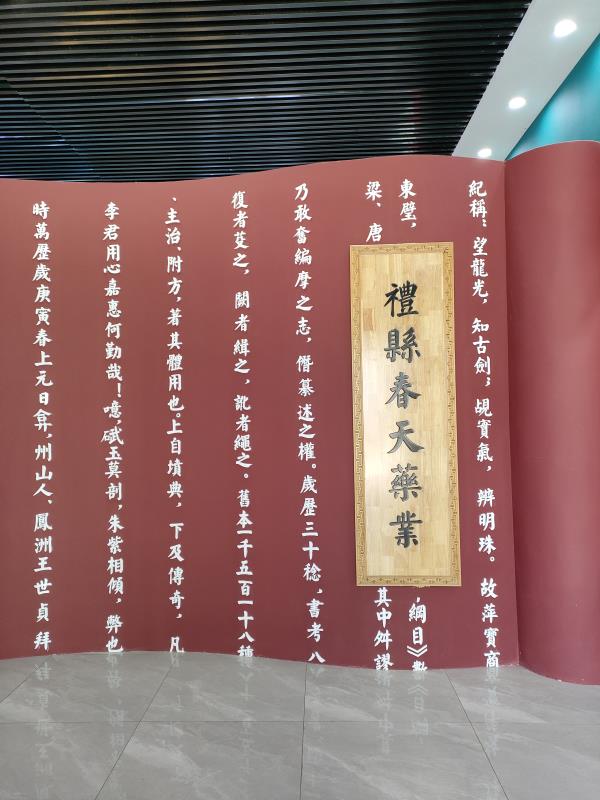 紀稱：望龍光，知古劍；覘寶氣，辨明珠。故萍實商
東壁，
，綱目》數
梁、唐
其中舛謬
禮縣春天藥業
乃敢奮編摩之志，僭纂述之權。歲歷三十稔，書考八
復者芟之，闕者緝之，訛者繩之。舊本一千五百一十八種
、主治、附方，著其體用也。上自墳典，下及傳奇，凡
李君用心嘉惠何勤哉！噫，碔玉莫剖，朱紫相傾，弊也
時萬歷歲庚寅春上元日弇，州山人、鳳洲王世貞拜